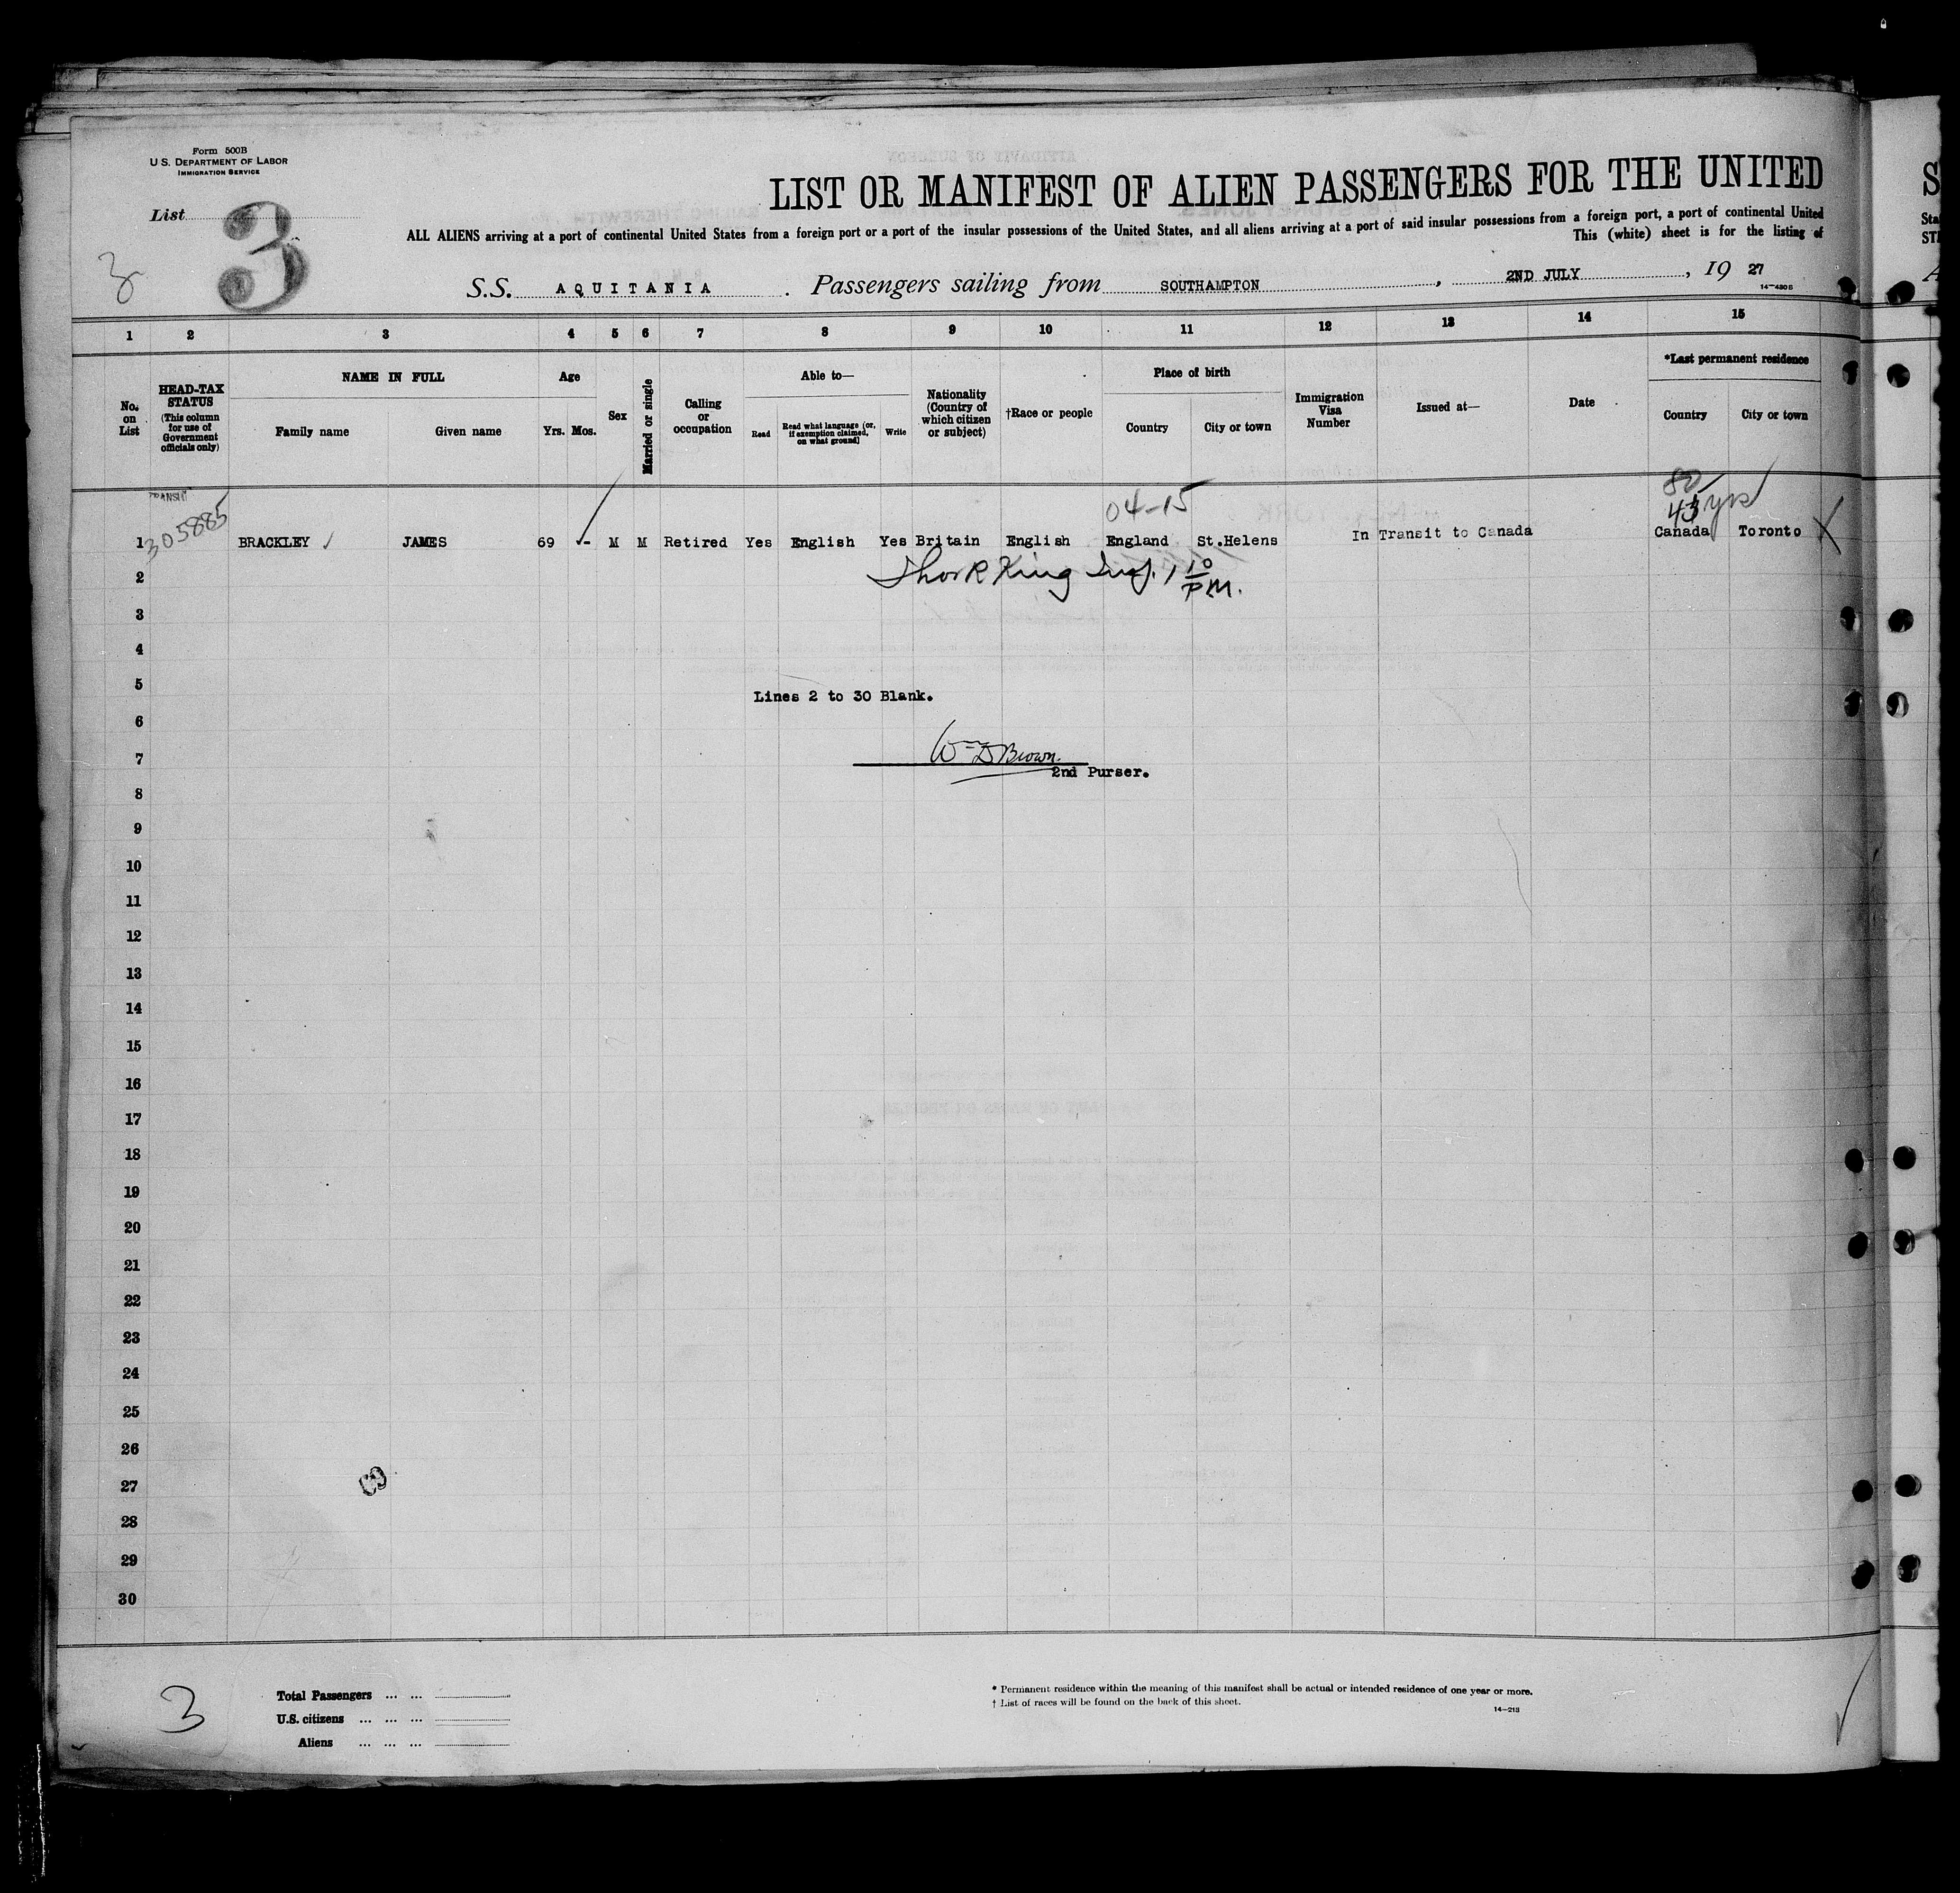 Form 500B
U S. DEPARTMENT OF LABOR
IMMIGRATION SERVICE
List
3
3
LIST OR MANIFEST OF ALIEN PASSENGERS FOR THE UNITED
ALL ALIENS arriving at a port of continental United States from a foreign port or a port of the insular possessions of the United States, and all aliens arriving at a port of said insular possessions from a foreign port, a port of continental United
This (white) sheet is for the listing of
S.S. AQUITANIA. Passengers sailing from SOUTHAMPTON, 2ND JULY, 19 27
14-430B
1 2 3 4 5 6 7 8 9 10 11 12 13 14 15
No. on List
HEAD-TAX STATUS (This column for use of Government officials only)
NAME IN FULL
Family name Given name
Age
Yrs. Mos.
Sex
Married or single
Calling or occupation
Able to—
Read Read what language (or, if exemption claimed, on what ground) Write
Nationality (Country of which citizen or subject)
†Race or people
Place of birth
Country City or town
Immigration Visa Number
Issued at—
Date
*Last permanent residence
Country City or town
TRANSIT
305885
04-15
80
45 yrs
1 BRACKLEY JAMES 69 - M M Retired Yes English Yes Britain English England St.Helens In Transit to Canada Canada Toronto X
2
King Insp. 1 10/PM.
3
4
5
Lines 2 to 30 Blank.
6
7
Wm D Brown.
2nd Purser.
8
9
10
11
12
13
14
15
16
17
18
19
20
21
22
23
24
25
26
27
28
29
30
3
Total Passengers ... ...
U.S. citizens ... ... ...
Aliens ... ... ...
* Permanent residence within the meaning of this manifest shall be actual or intended residence of one year or more.
† List of races will be found on the back of this sheet.
14-213